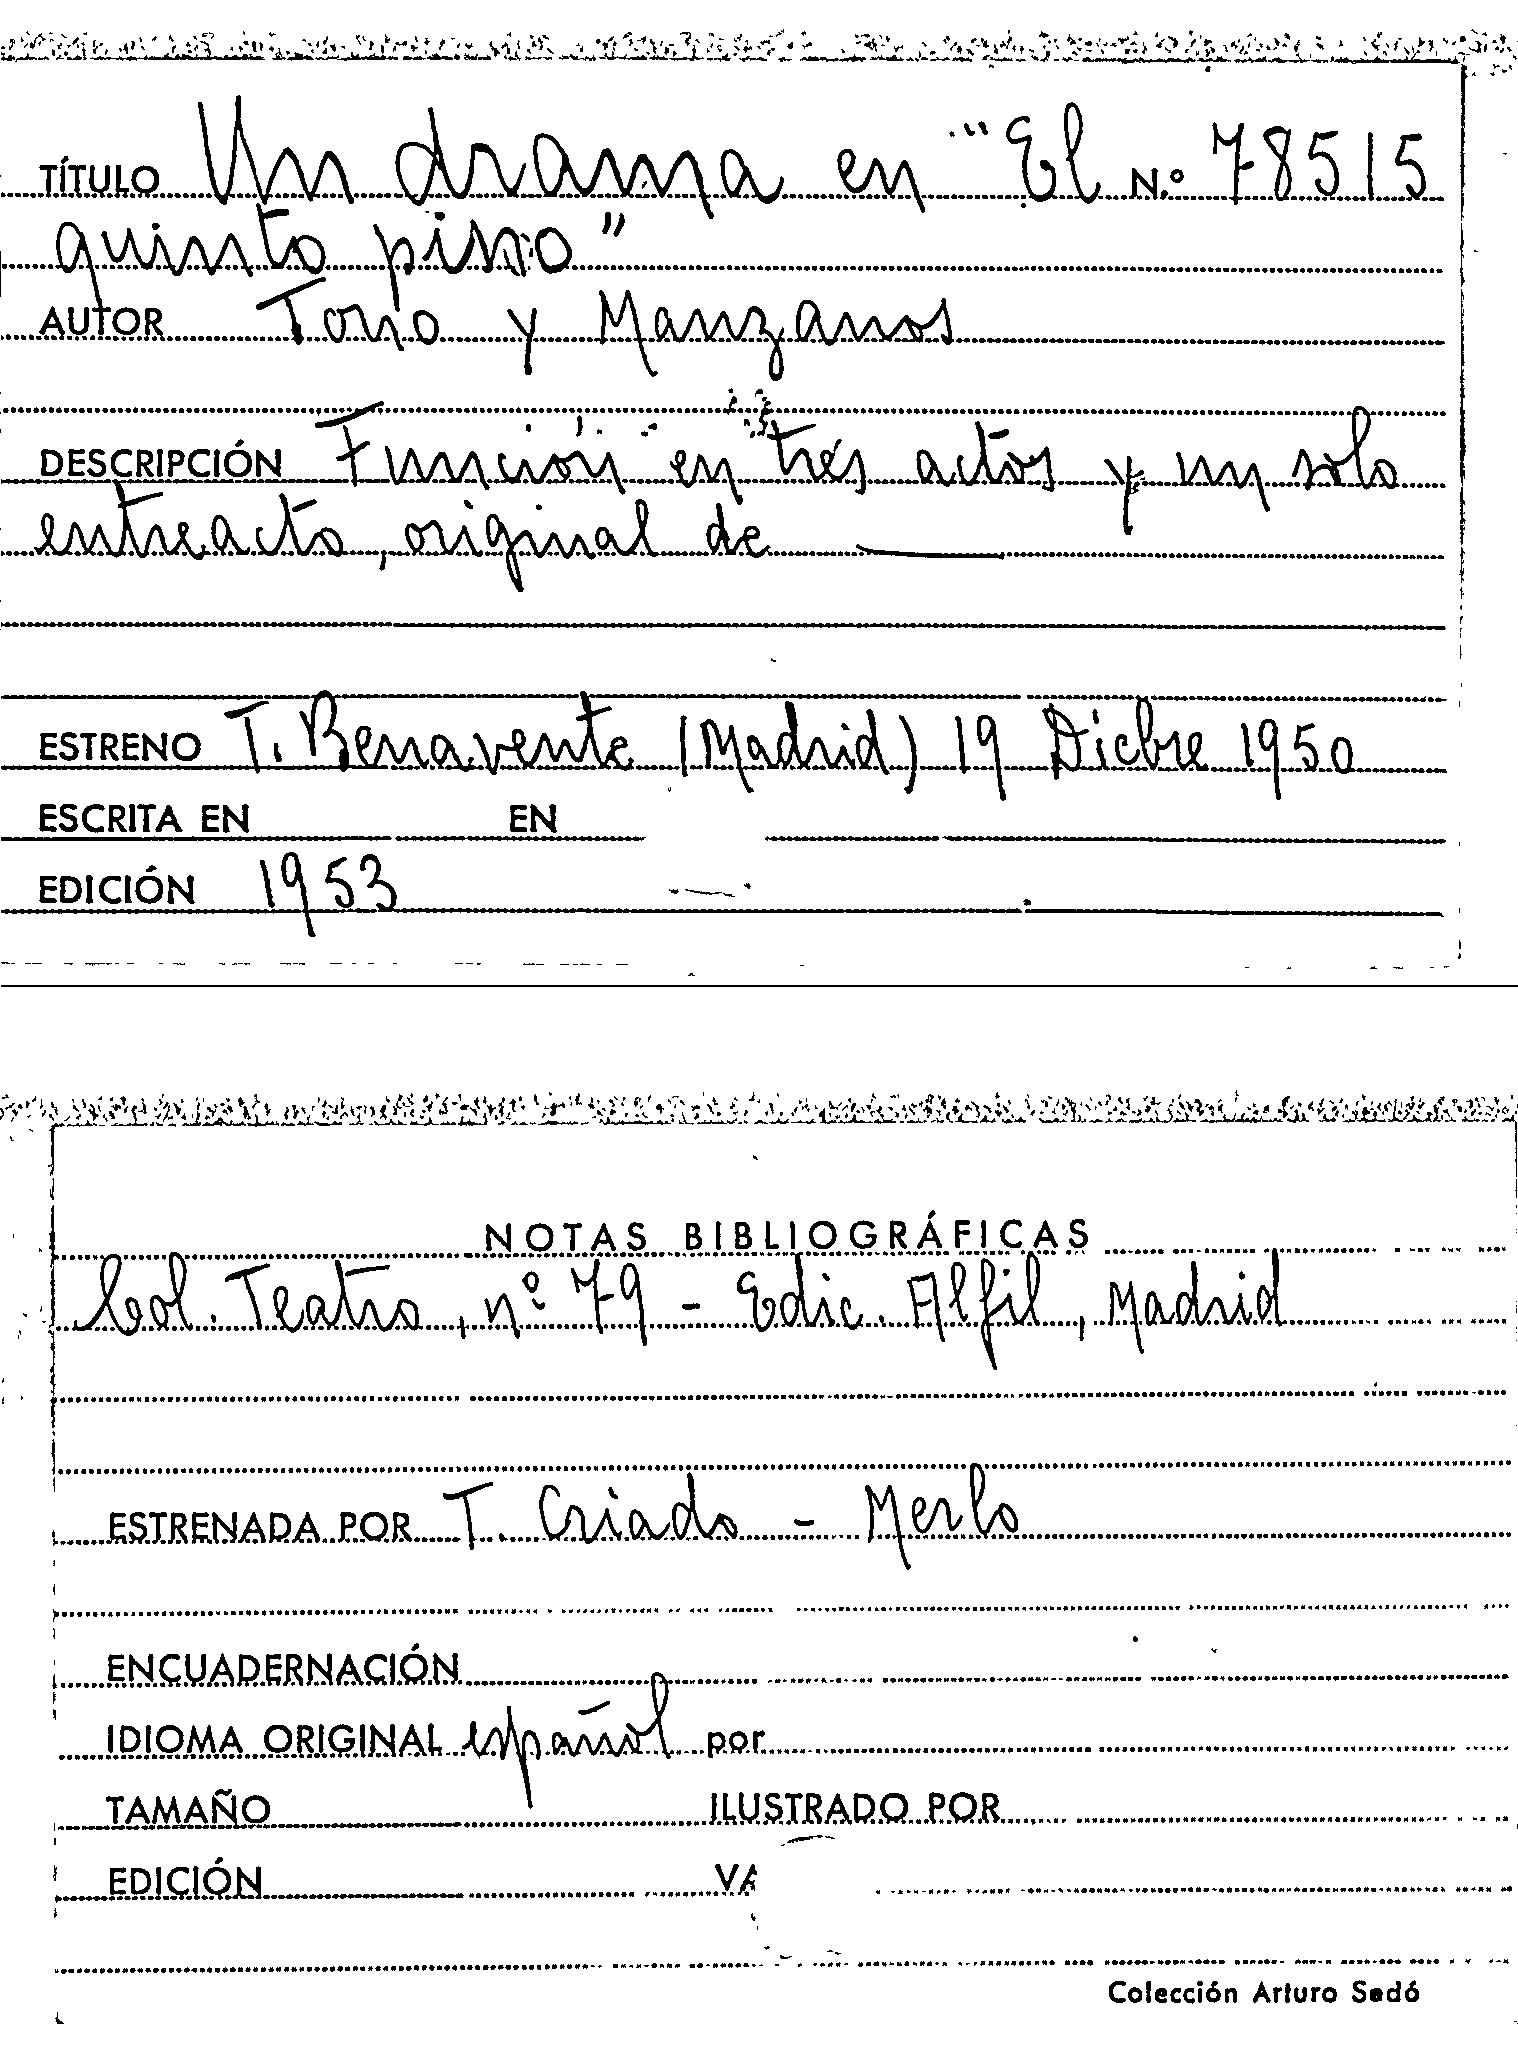 TÍTULO Un drama en "El N.º 78515
quinto piso"
AUTOR Tono y Manzanos
DESCRIPCIÓN Función en tres actos y un solo
entreacto, original de ———
ESTRENO T. Benavente (Madrid) 19 Dicbre 1950
ESCRITA EN EN
EDICIÓN 1953
NOTAS BIBLIOGRÁFICAS
Col. Teatro, nº 79 - Edic. Alfil, Madrid
ESTRENADA POR T. Criado - Merlo
ENCUADERNACIÓN
IDIOMA ORIGINAL español por
TAMAÑO ILUSTRADO POR
EDICIÓN VA
Colección Arturo Sedó